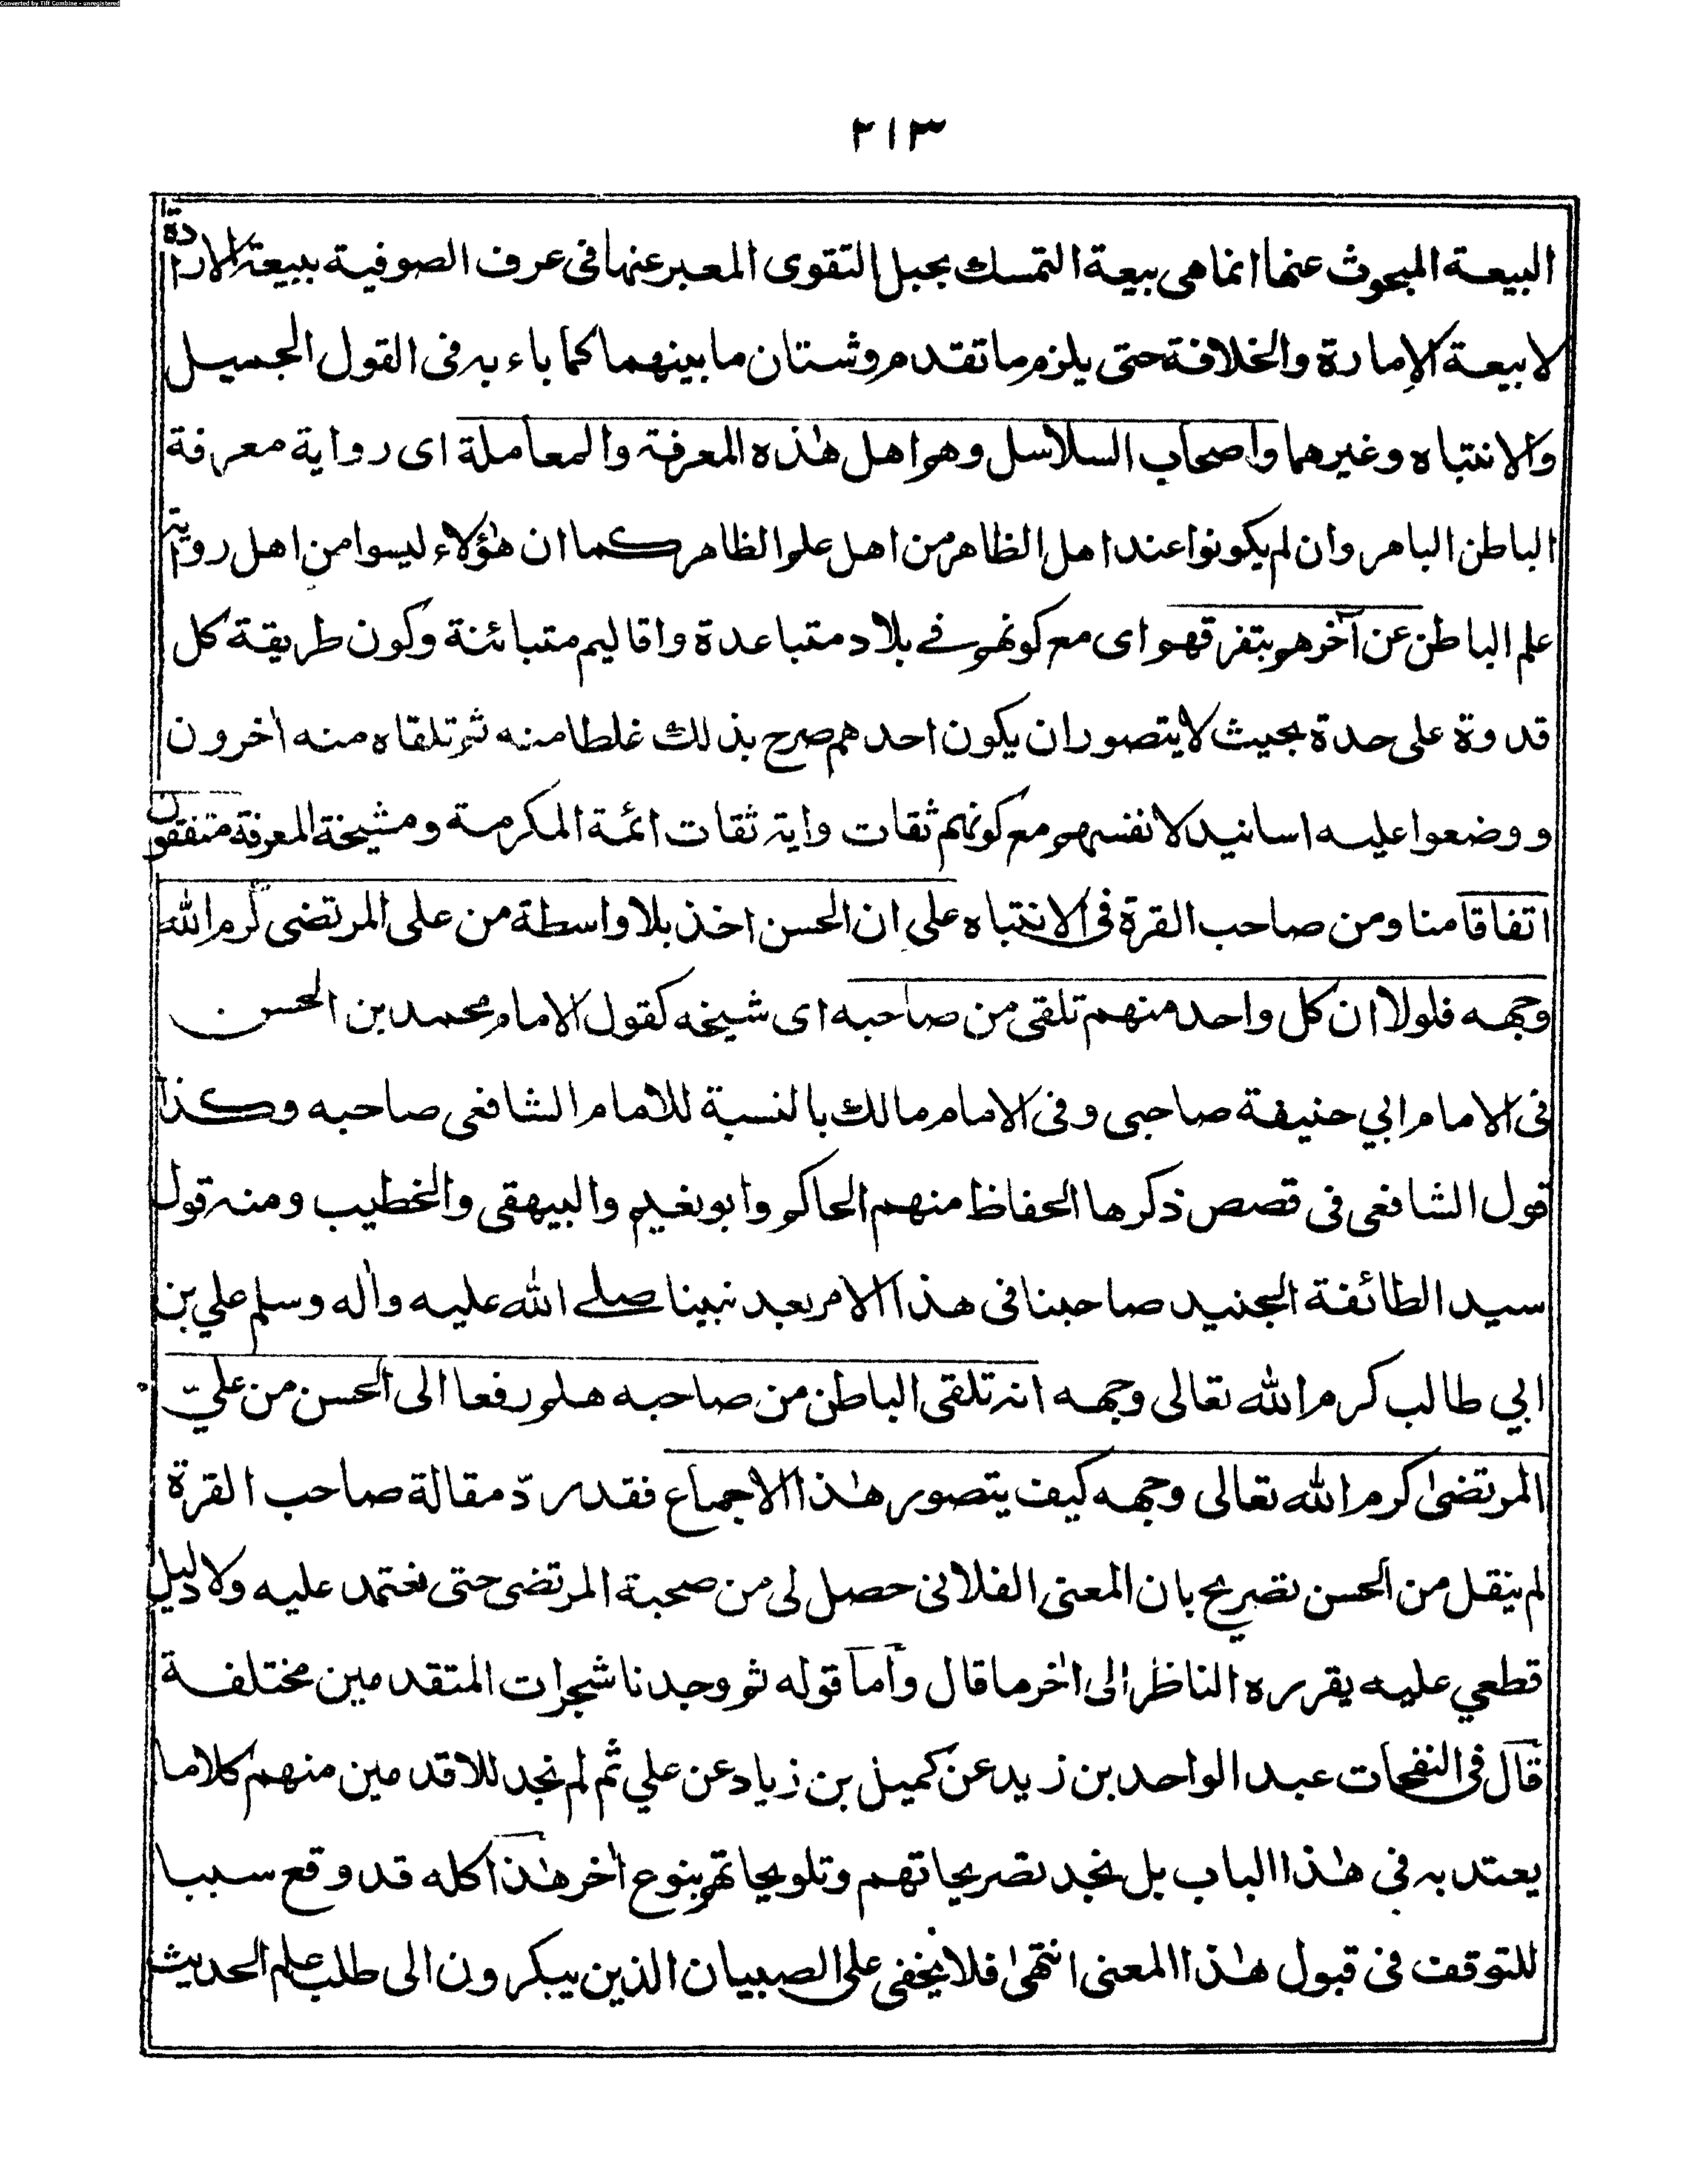 Converted by Tiff Combine - unregistered
٢١٣
البيعة المبحوث عنها انما هى بيعة التمسك بحبل التقوى المعبر عنها فى عرف الصوفية ببيعة الارادة
لا بيعة الإمارة والخلافة حتى يلزم ما تقدم وشتان ما بينهما كما باء به فى القول الجميل
والانتباه وغيرهما واصحاب السلاسل وهم اهل هٰذه المعرفة والمعاملة اى رواية معرفة
الباطن الباهر وان لم يكونوا عند اهل الظاهر من اهل علم الظاهر كما ان هٰؤلاء ليسوا من اهل روية
علم الباطن عن آخرهم بتفرقهم اى مع كونهم فے بلاد متباعدة واقاليم متبائنة وكون طريقة كل
قدوة على حدة بحيث لا يتصور ان يكون احدهم صرح بذلك غلطا منه ثم تلقاه منه اٰخرون
ووضعوا عليه اسانيد لانفسهم مع كونهم ثقات واية ثقات ائمة المكرمة ومشيخة المعرفة متفقون
اتفاقا منا ومن صاحب القرة فى الانتباه على ان الحسن اخذ بلا واسطة من على المرتضى كرم الله
وجهه فلولا ان كل واحد منهم تلقى من صاحبه اى شيخه كقول الامام محمد بن الحسن
فى الامام ابي حنيفة صاحبى وفى الامام مالك بالنسبة للامام الشافعى صاحبه وكذا
قول الشافعى فى قصص ذكرها الحفاظ منهم الحاكم وابو نعيم والبيهقى والخطيب ومنه قول
سيد الطائفة الجنيد صاحبنا فى هذا الامر بعد نبينا صلے الله عليه واٰله وسلم علي بن
ابي طالب كرم الله تعالى وجهه انه تلقى الباطن من صاحبه هلم رفعا الى الحسن من عليّ
المرتضىٰ كرم الله تعالى وجهه كيف يتصور هٰذا الاجماع فقد ردّ مقالة صاحب القرة
لم ينقل من الحسن تصريح بان المعنى الفلانى حصل لى من صحبة المرتضى حتى نعتمد عليه ولا دليل
قطعي عليه يقرره الناظر الى اٰخر ما قال وأما قوله ثم وجدنا شجرات المتقدمين مختلفة
قال فى النفحات عبد الواحد بن زيد عن كميل بن زياد عن علي ثم لم نجد للاقدمين منهم كلاما
يعتد به فى هٰذا الباب بل نجد تصريحاتهم وتلويحاتهم بنوع اٰخر هٰذا كله قد وقع سببا
للتوقف فى قبول هٰذا المعنى انتهىٰ فلا يخفى على الصبيان الذين يبكرون الى طلب علم الحديث